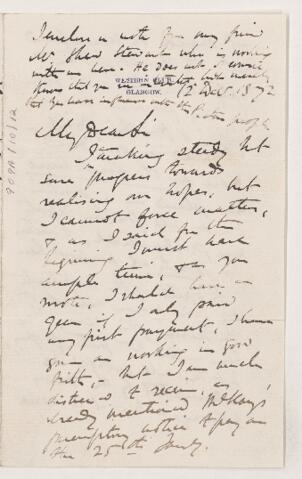 I enclose a note from my friend
Mr. Shaw Stewart who is working
with us here. He does not
knows that you
WESTERN CLUB,
GLASGOW.
12 Decr. 1872
that you have influence with the people
My Dear Sir
I am making steady but
sure progress towards
realising our hopes, but
I cannot force matters,
& as I said from the
beginning I must have
ample time, & as you
wrote, I should have a
year if I only paid
my first payment, I have
gone on working in good
faith, - but I am much
distressed to receive, as
already mentioned McKay's
peremptory notice to pay on
the 25th Jany.
909A/10/12